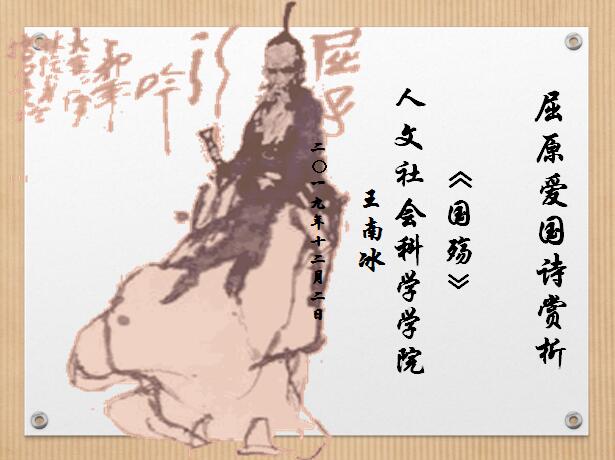 屈原爱国诗赏析
《国殇》
人文社会科学学院
王南冰
二〇一九年十二月二日
屈子
行
吟